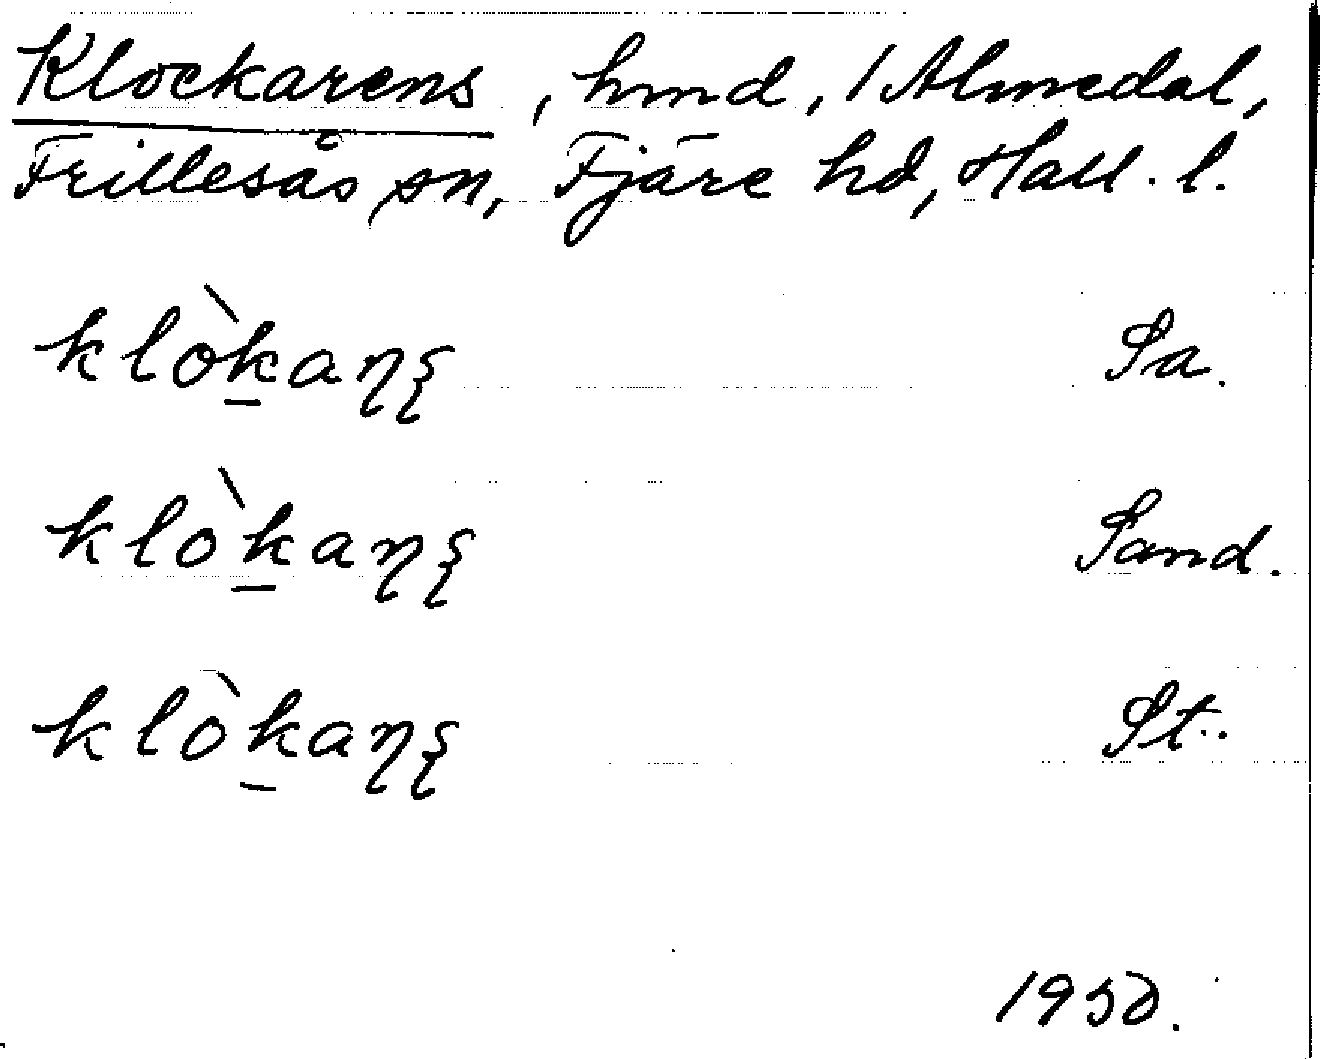 Klockarens, hmd, 1 Almedal,
Frillesås sn, Fjäre hd, Hall. l.
klòk̠aꞃʂ Sa.
klòk̠aꞃʂ Sand.
klòk̠aꞃʂ St.
1950.